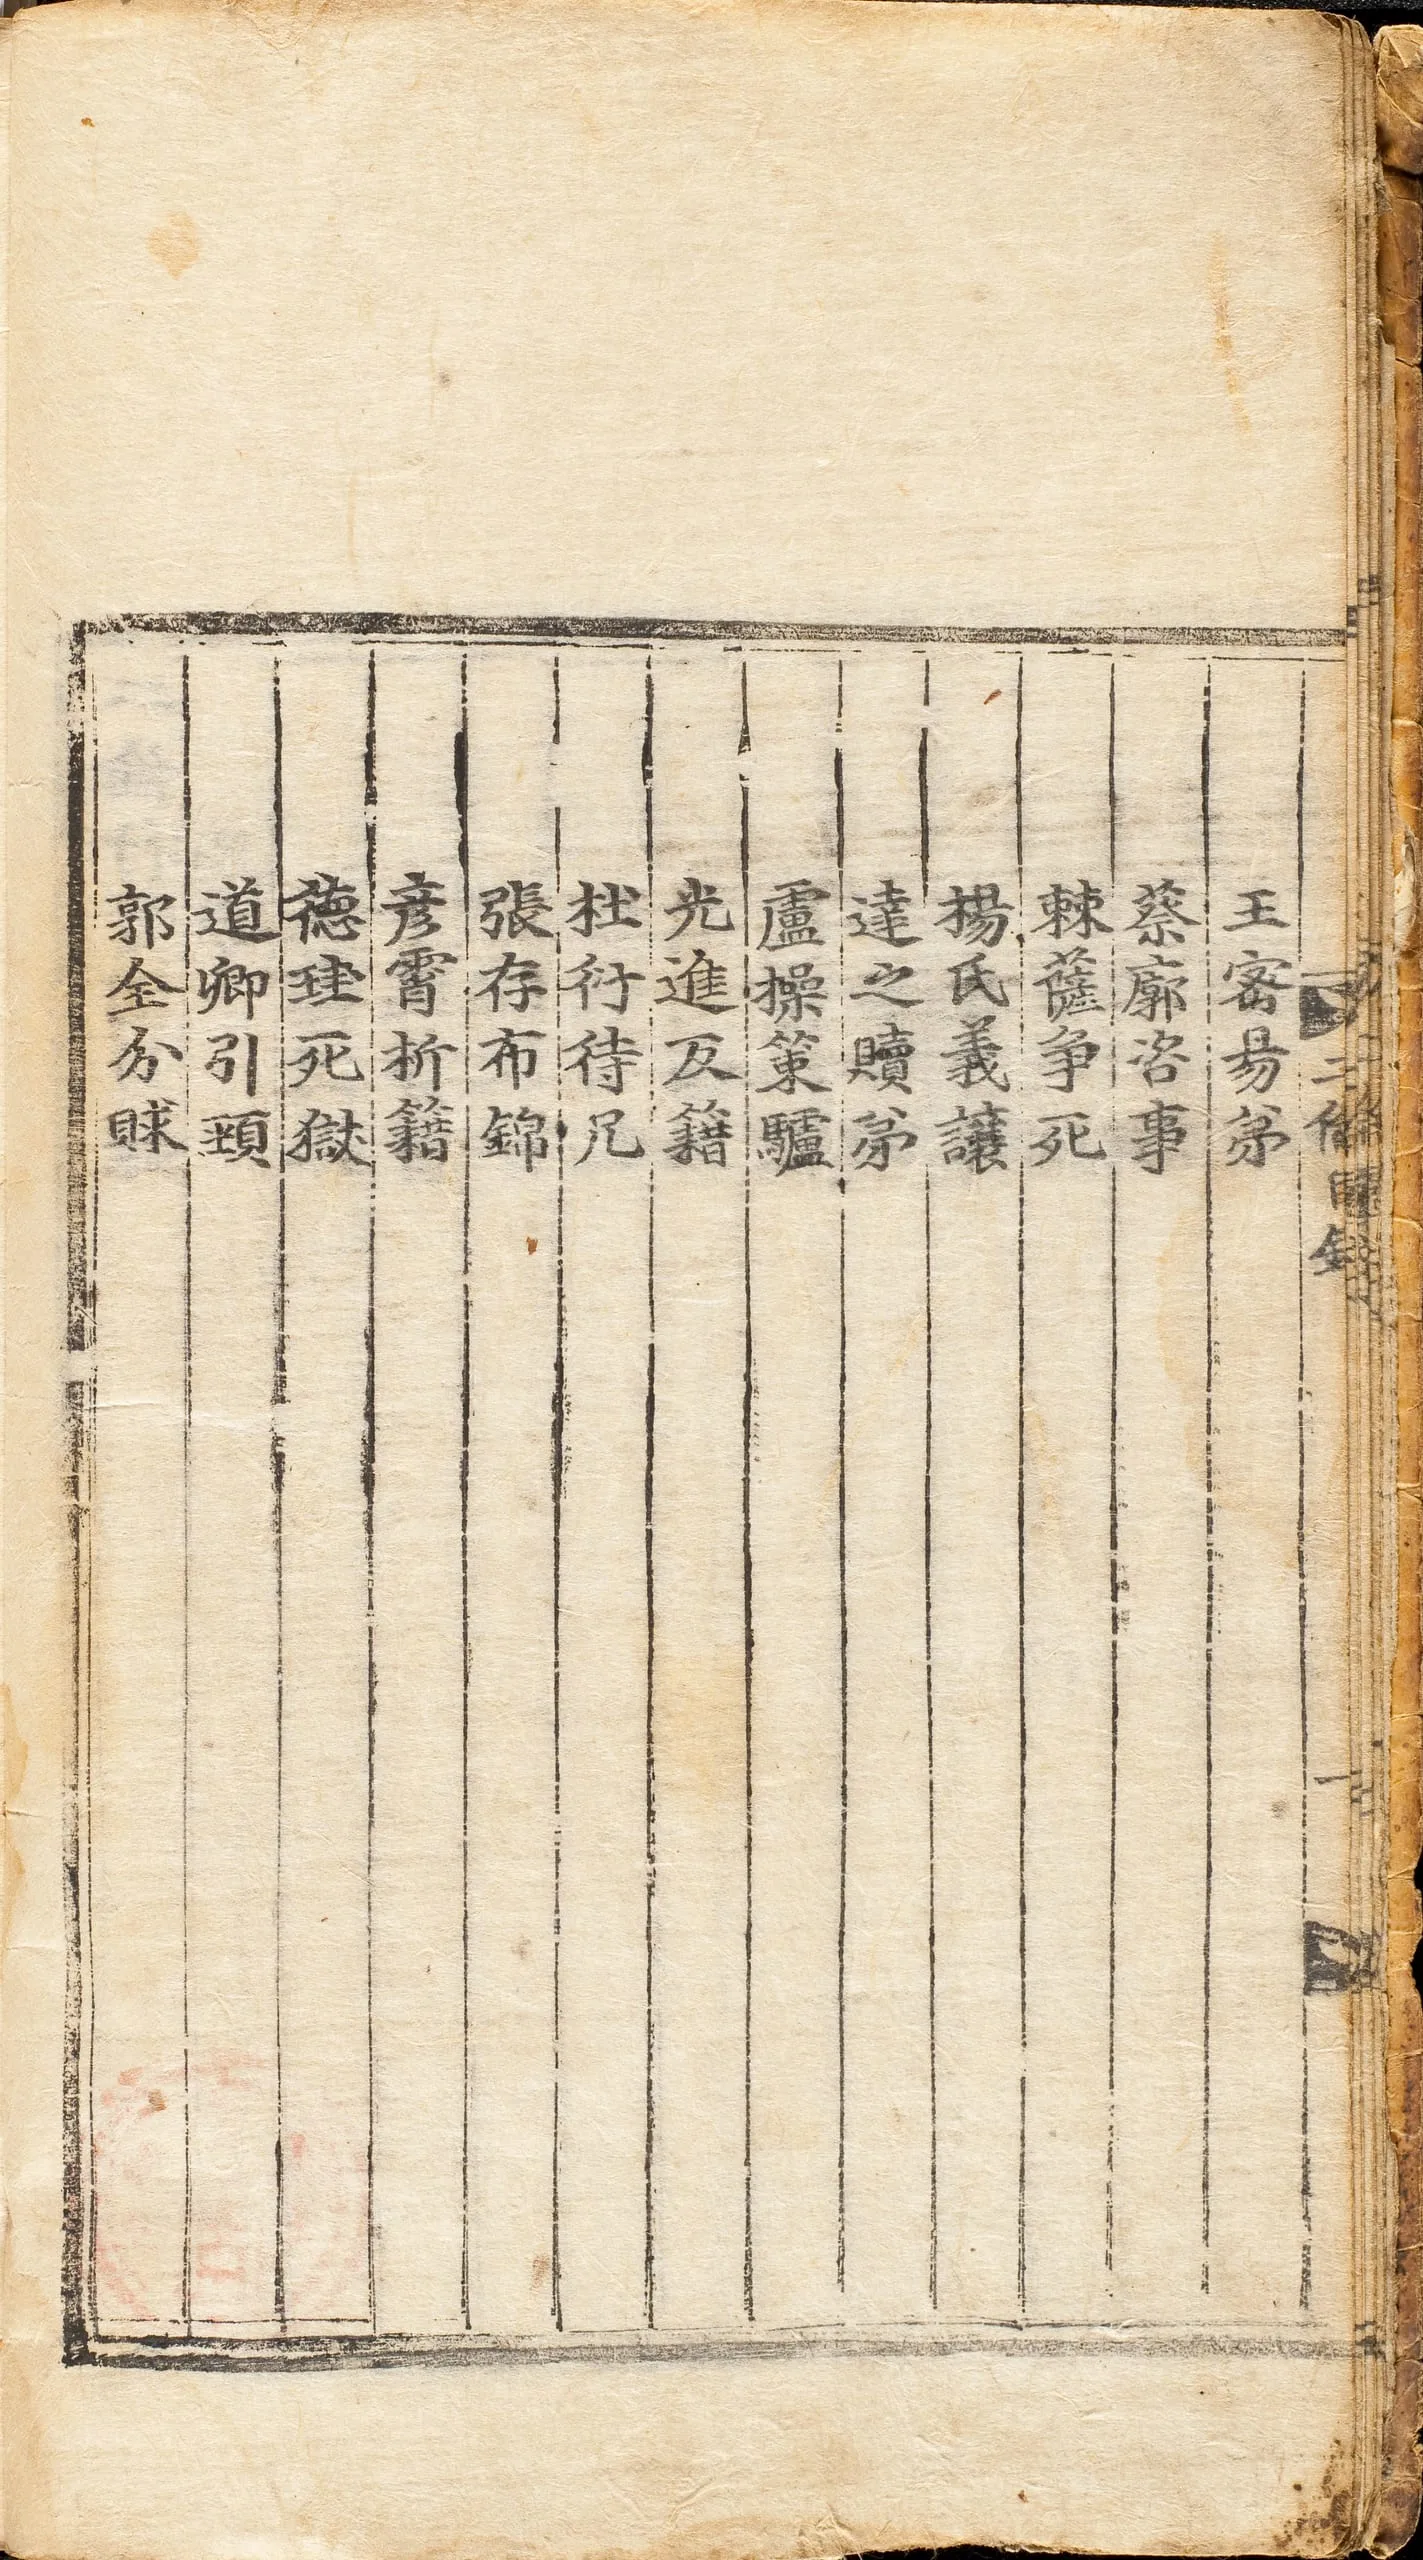 王密易㐧
蔡廓咨事
棘薩争死
楊氏義讓
達之贖㐧
盧操策驢
光進反籍
杜衍待凡
張存布錦
彦霄析籍
德珪死獄
道卿引頸
郭全分財